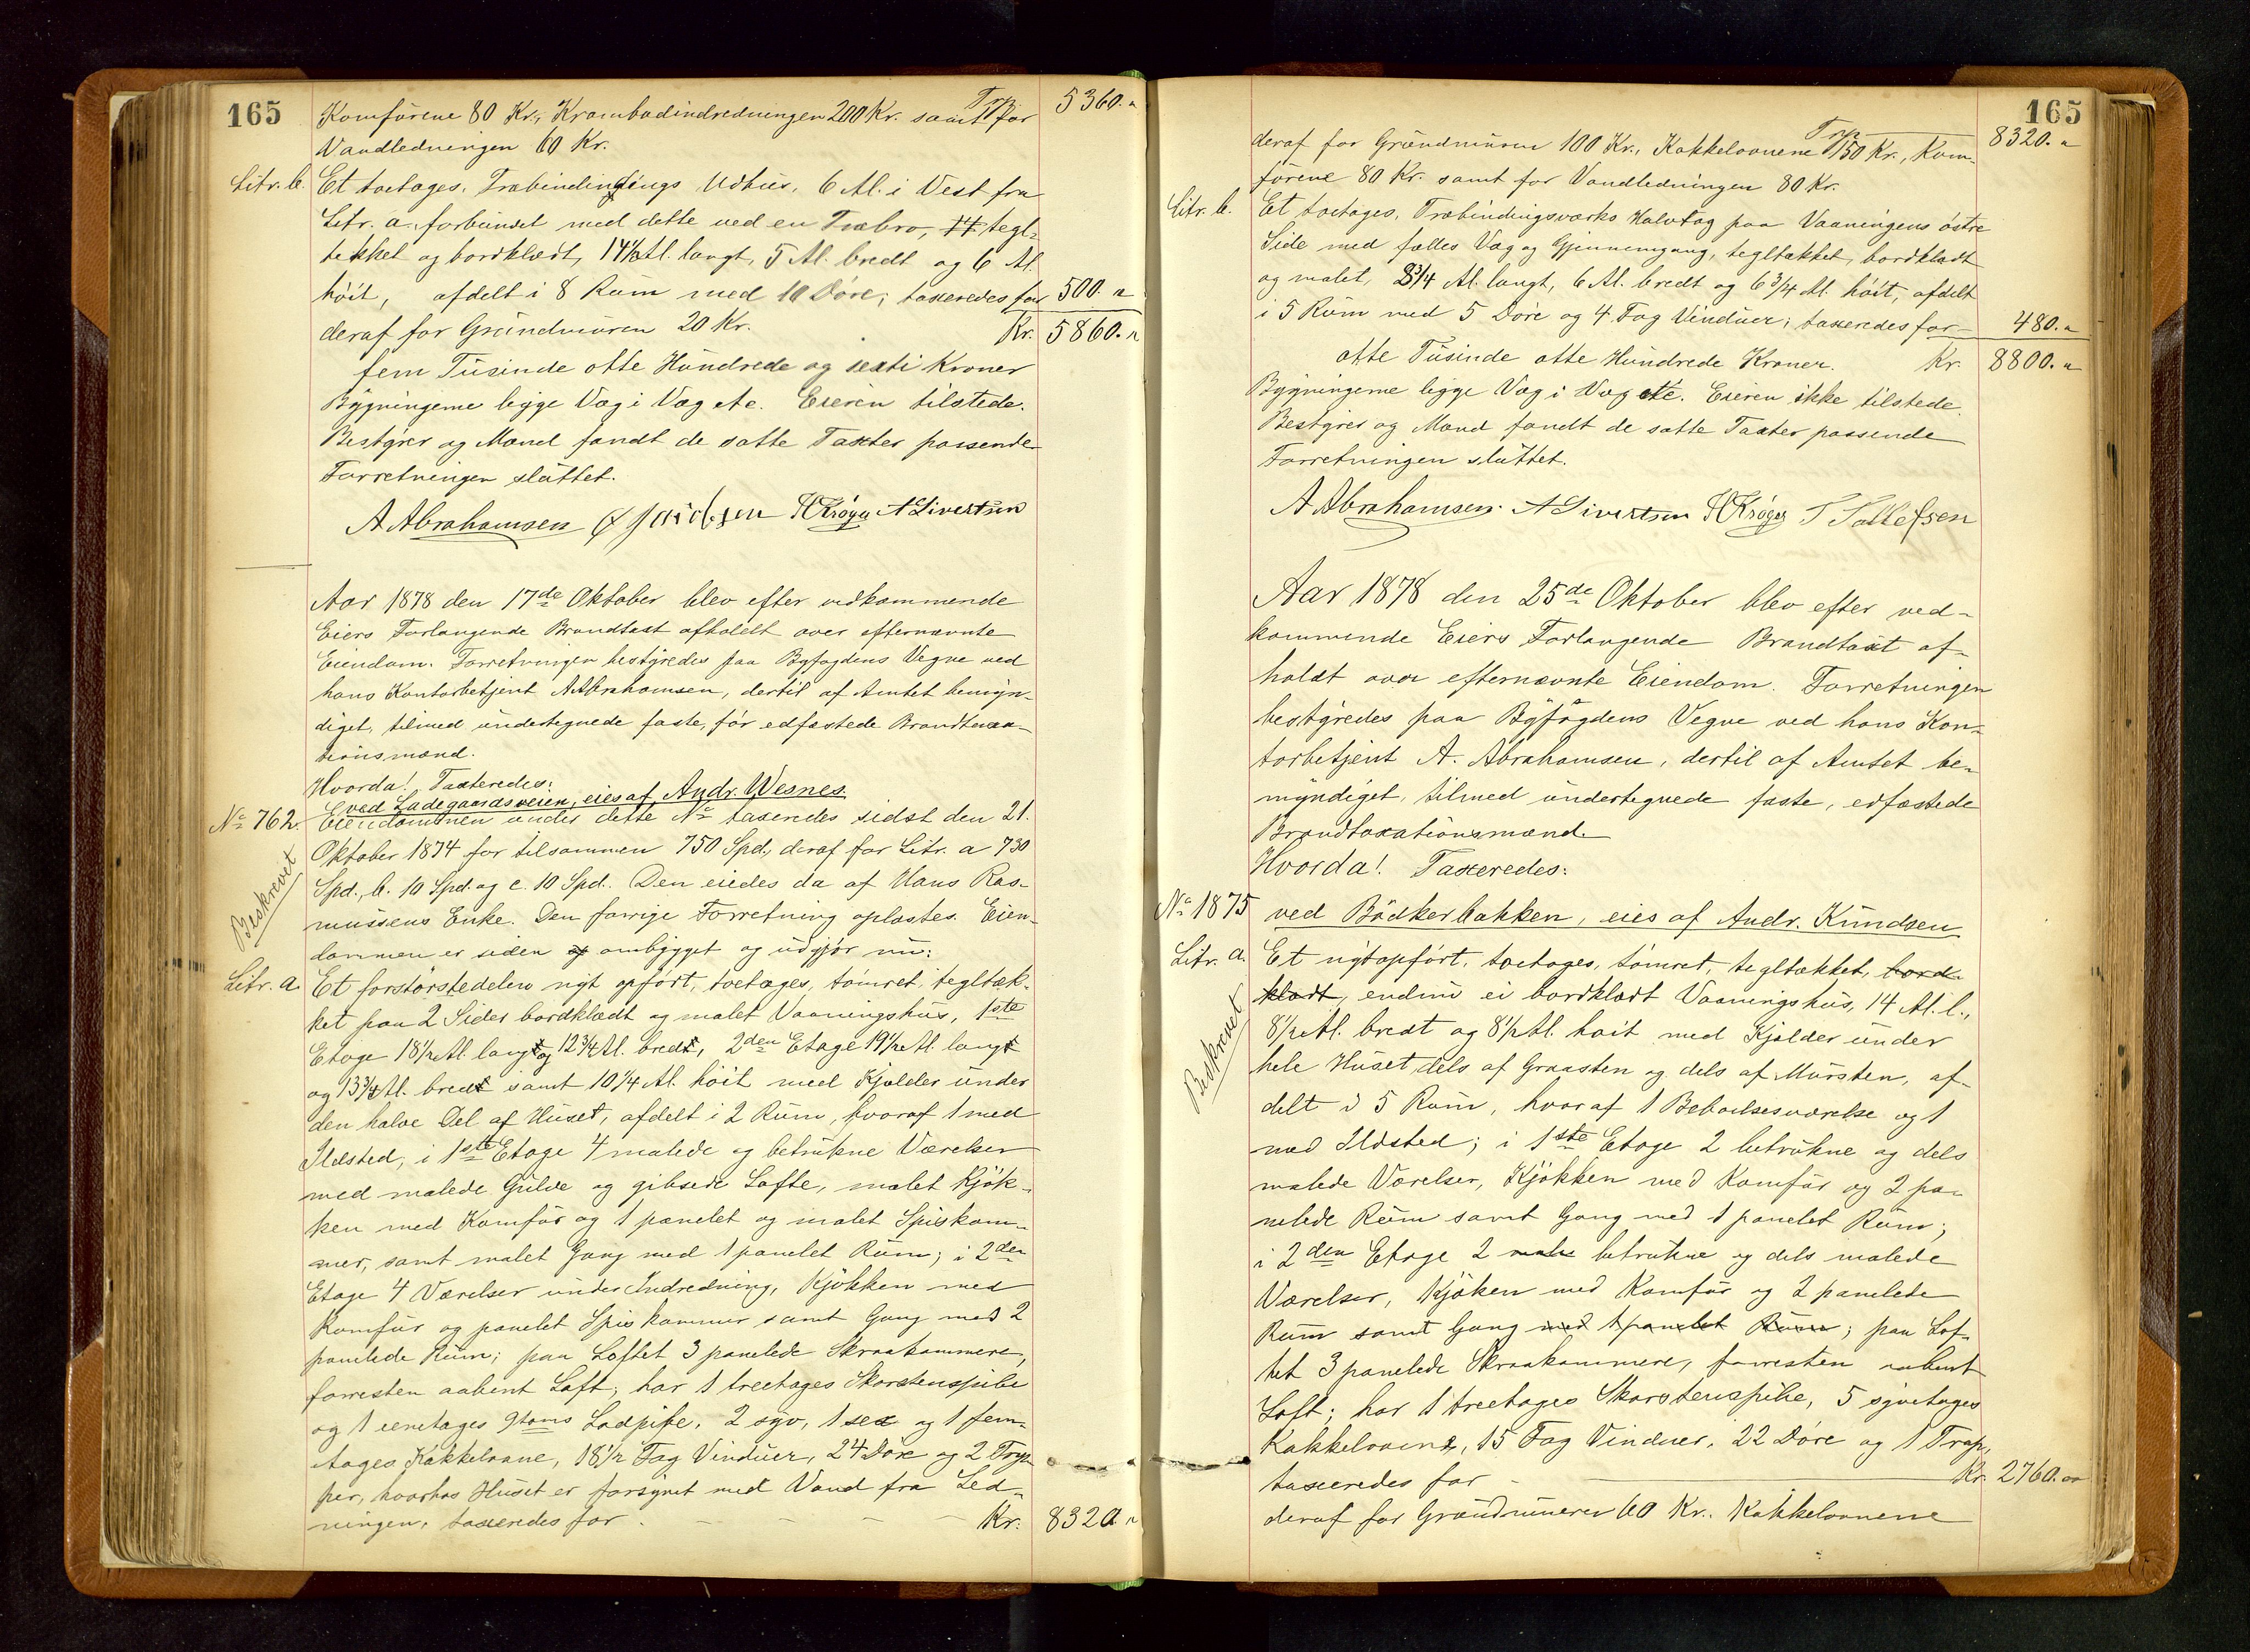 165
Komfürene 80 Kr., Krambodindredningen 200 Kr. samt for
Trp. 5360. "
Vandledningen 60 Kr.
Litr. b. Et toetages, Træbindings Udhus, 6 Al. i Vest fra
Litr. a. forbundet med dette ved en Træbro, tegl-
tækket og bordklædt, 14½ Al. langt, 5 Al. bredt og 6 Al.
höit, afdelt i 8 Rum med 10 Döre; taxeredes for 500. "
deraf for Grundmuren 20 Kr. Kr. 5860. "
fem Tusinde otte Hundrede og sexti Kroner
Bygningerne ligge Væg i Væg etc. Eieren tilstede.
Bestyrer og Mænd fandt de satte Taxter passende
Forretningen sluttet.
A Abrahamsen HKröger A Sivertsen
Aar 1878 den 17de Oktober blev efter vedkommende
Eiers Forlangende Brandtaxt afholdt over efternævnte
Eiendom. Forretningen bestyredes paa Byfogdens Vegne ved
hans Kontorbetjent A Abrahamsen, dertil af Amtet bemyn-
diget, tilmed undertegnede faste, för edfæstede Brandtaxa-
tionsmænd.
Hvorda! Taxteredes:
ved Ladegaardsveien, eies af Andr. Wesnes
No 762. Eiendommen under dette No taxeredes sidst den 21.
Oktober 1874 for tilsammen 750 Spd., deraf for Litr. a 730
Beskrevet
Spd., b. 10 Spd. og c. 10 Spd. Den eiedes da af Hans Ras-
mussens Enke. Den forrige Forretning oplæstes. Eien-
dommen er siden ombygget og udgjör nu:
Litr. a. Et forstörstedelen nyt opfört, toetages, tömret, tegltæk-
ket paa 2 Sider bordklædt og malet Vaaningshus, 1ste
Etage 18½ Al. langt og 12¾ Al. bredt, 2den Etage 19½ Al. langt
og 13¾ Al. bredt samt 10¼ Al. höit med Kjælder under
den halve Del af Huset, afdelt i 2 Rum, hvoraf 1 med
Ildsted; i 1ste Etage 4 malede og betrukne Værelser
med malede Gulve og gibsede Lofte, malet Kjök-
ken med Komfür og 1 panelet og malet Spiskam-
mer, samt malet Gang med 1 panelet Rum; i 2den
Etage 4 Værelser under Indredning, Kjökken med
Komfür og panelet Spiskammer samt Gang med 2
panelede Rum; paa Loftet 3 panelede Skraakammere,
forresten aabent Loft; har 1 treetages Skorstenspibe
og 1 eenetages 9toms Lodpibe, 2 syv, 1 sex og 1 fem-
tages Kakkelovne, 18½ Fag Vinduer, 24 Döre og 2 Trap-
per, hvorhos Huset er forsynet med Vand fra Led-
ningen, taxeredes for Kr. 8320 "
165
Trp. 8320. "
deraf for Grundmuren 100 Kr., Kakkelovnene 150 Kr., Kom-
fürene 80 Kr. samt for Vandledningen 80 Kr.
Litr. b. Et toetages, Træbindingsværks Halvtag paa Vaaningens östre
Side med fælles Væg og Gjennemgang, tegltækket, bordklædt
og malet, 8¾ Al. langt, 6 Al. bredt og 6¾ Al. höit, afdelt
i 5 Rum med 5 Döre og 4 Fag Vinduer; taxeredes for 480. "
otte Tusinde otte Hundrede Kroner. Kr. 8800. "
Bygningerne ligge Væg i Væg etc. Eieren ikke tilstede.
Bestyrer og Mænd fandt de satte Taxter passende
Forretningen sluttet.
A Abrahamsen. A Sivertsen HKröger T Tollefsen
Aar 1878 den 25de Oktober blev efter ved-
kommende Eiers Forlangende Brandtaxt af-
holdt over efternævnte Eiendom. Forretningen
bestyredes paa Byfogdens Vegne ved hans Kon-
torbetjent A. Abrahamsen, dertil af Amtet be-
myndiget, tilmed undertegnede faste, edfæstede
Brandtaxationsmænd.
Hvorda! Taxeredes:
No 1875 ved Bödkerbakken, eies af Andr. Knudsen
Litr. a. Et nytopfört, toetages, tömret, tegltækket, bord-
klædt, endnu ei bordklædt Vaaningshus, 14 Al. l.,
Beskrevet
8½ Al. bredt og 8½ Al. höit med Kjælder under
hele Huset, dels af Graasten og dels af Mursten, af-
delt i 5 Rum, hvoraf 1 Beboelsesværelse og 1
med Ildsted; i 1ste Etage 2 betrukne og dels
malede Værelser, Kjökken med Komfür og 2 pa-
nelede Rum samt Gang med 1 panelet Rum;
i 2den Etage 2 male betrukne og dels malede
Værelser, Kjöken med Komfür og 2 panelede
Rum samt Gang med 1 panelet Rum; paa Lof-
tet 3 panelede Skraakammere, forresten aabent
Loft; har 1 treetages Skorstenspibe, 5 syvetages
Kakkelovne, 15 Fag Vinduer, 22 Döre og 1 Trap,
taxeredes for Kr. 2760. "
deraf for Grundmuren 60 Kr. Kakkelovnene